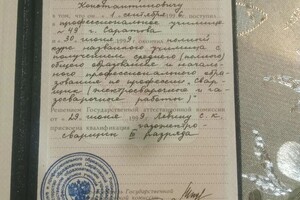 Константиновичу
в том, что он 1 сентября
профессиональное училище
№ 49 г. Саратова
30 июня 1999 г. окончил полный
курс названного училища с
получением среднего (полного)
общего образования и началь-
ного профессионального обра-
зования по профессии: свар-
щик (электросварочные и га-
зосварочные работы).
Решением Государственной аттестационной комиссии
от 19 июня 1999 г.
присвоена квалификация
сварщик III разряда
Государственной